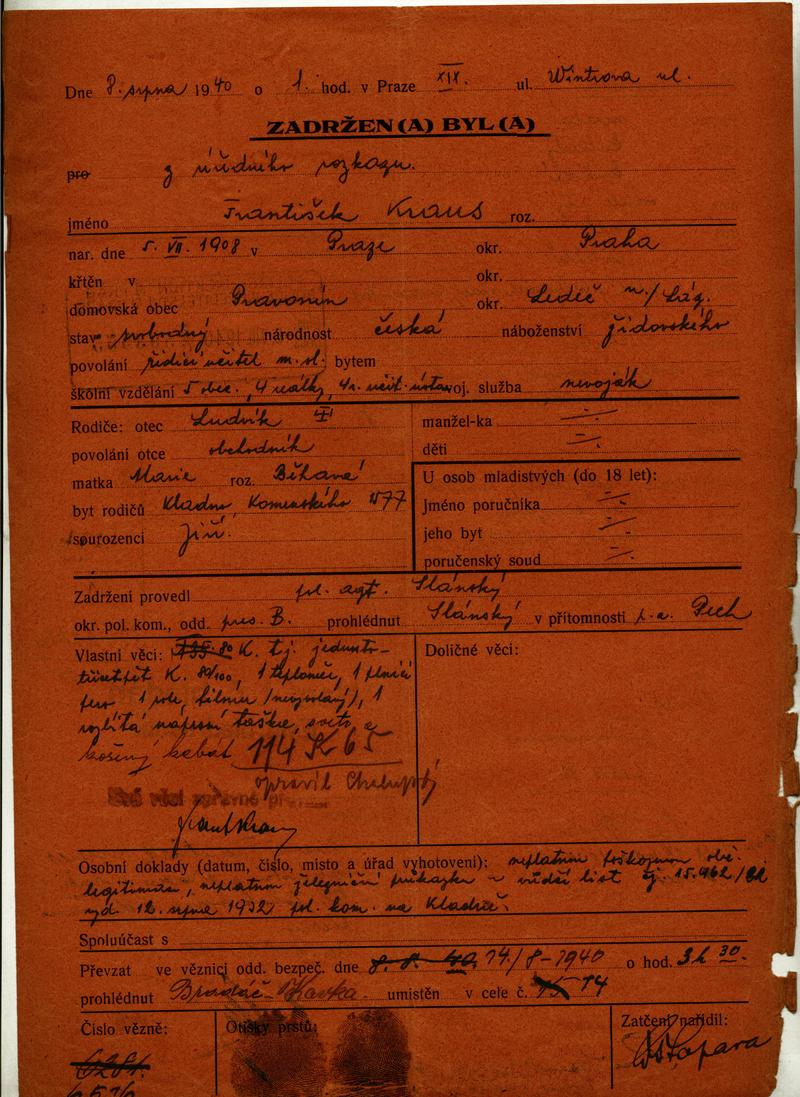 Dne 8. srpna 1940 o 1. hod. v Praze XIX. ul. Wintrova ul.
ZADRŽEN(A) BYL(A)
pro z úředního rozkazu.
jméno František Kraus roz.
nar. dne 5. VII. 1908 v Praze okr. Praha
křtěn v okr.
domovská obec Pravonín okr. Ledeč n./Sáz.
stav svobodný národnost česká náboženství židovského
povolání řídící učitel m. sl. bytem
školní vzdělání 5 obec., 4 reálky, 4 r. učit. ústav voj. služba nevoják
Rodiče: otec Ludvík manžel-ka
povolání otce obchodník děti
matka Marie roz. Běhavá U osob mladistvých (do 18 let):
byt rodičů Kladno, Komenského 1577 Jméno poručníka
sourozenci Jiří. jeho byt
poručenský soud
Zadržení provedl pol. agt. Slánský
okr. pol. kom., odd. pres. B. prohlédnut Slánský v přítomnosti p. a. Pech
Vlastní věci: 135.80 K. tj. jednusto-
třicetpět K. 80/100, 1 teploměr, 1 plnicí
pero 1 role, filmu (nevyvolaný), 1
náprsní taška, svetr, a
kožený kabát 114 K 65
opravil Chalupský
Osobní doklady (datum, číslo, místo a úřad vyhotovení): neplatnou obč.
legitimaci, neplatnou železniční průkazku a vůdčí list čj. 15.462/32
vyd. 12. srpna 1932 pol. kom. na Kladně.
Spoluúčast s
Převzat ve věznici odd. bezpeč. dne 8. 8. 40. 14./8-1940 o hod. 3h 30.
prohlédnut Bradáč umístěn v cele č. 15 14
Číslo vězně: Otisky prstů: Zatčení nařídil:
6281.
6576